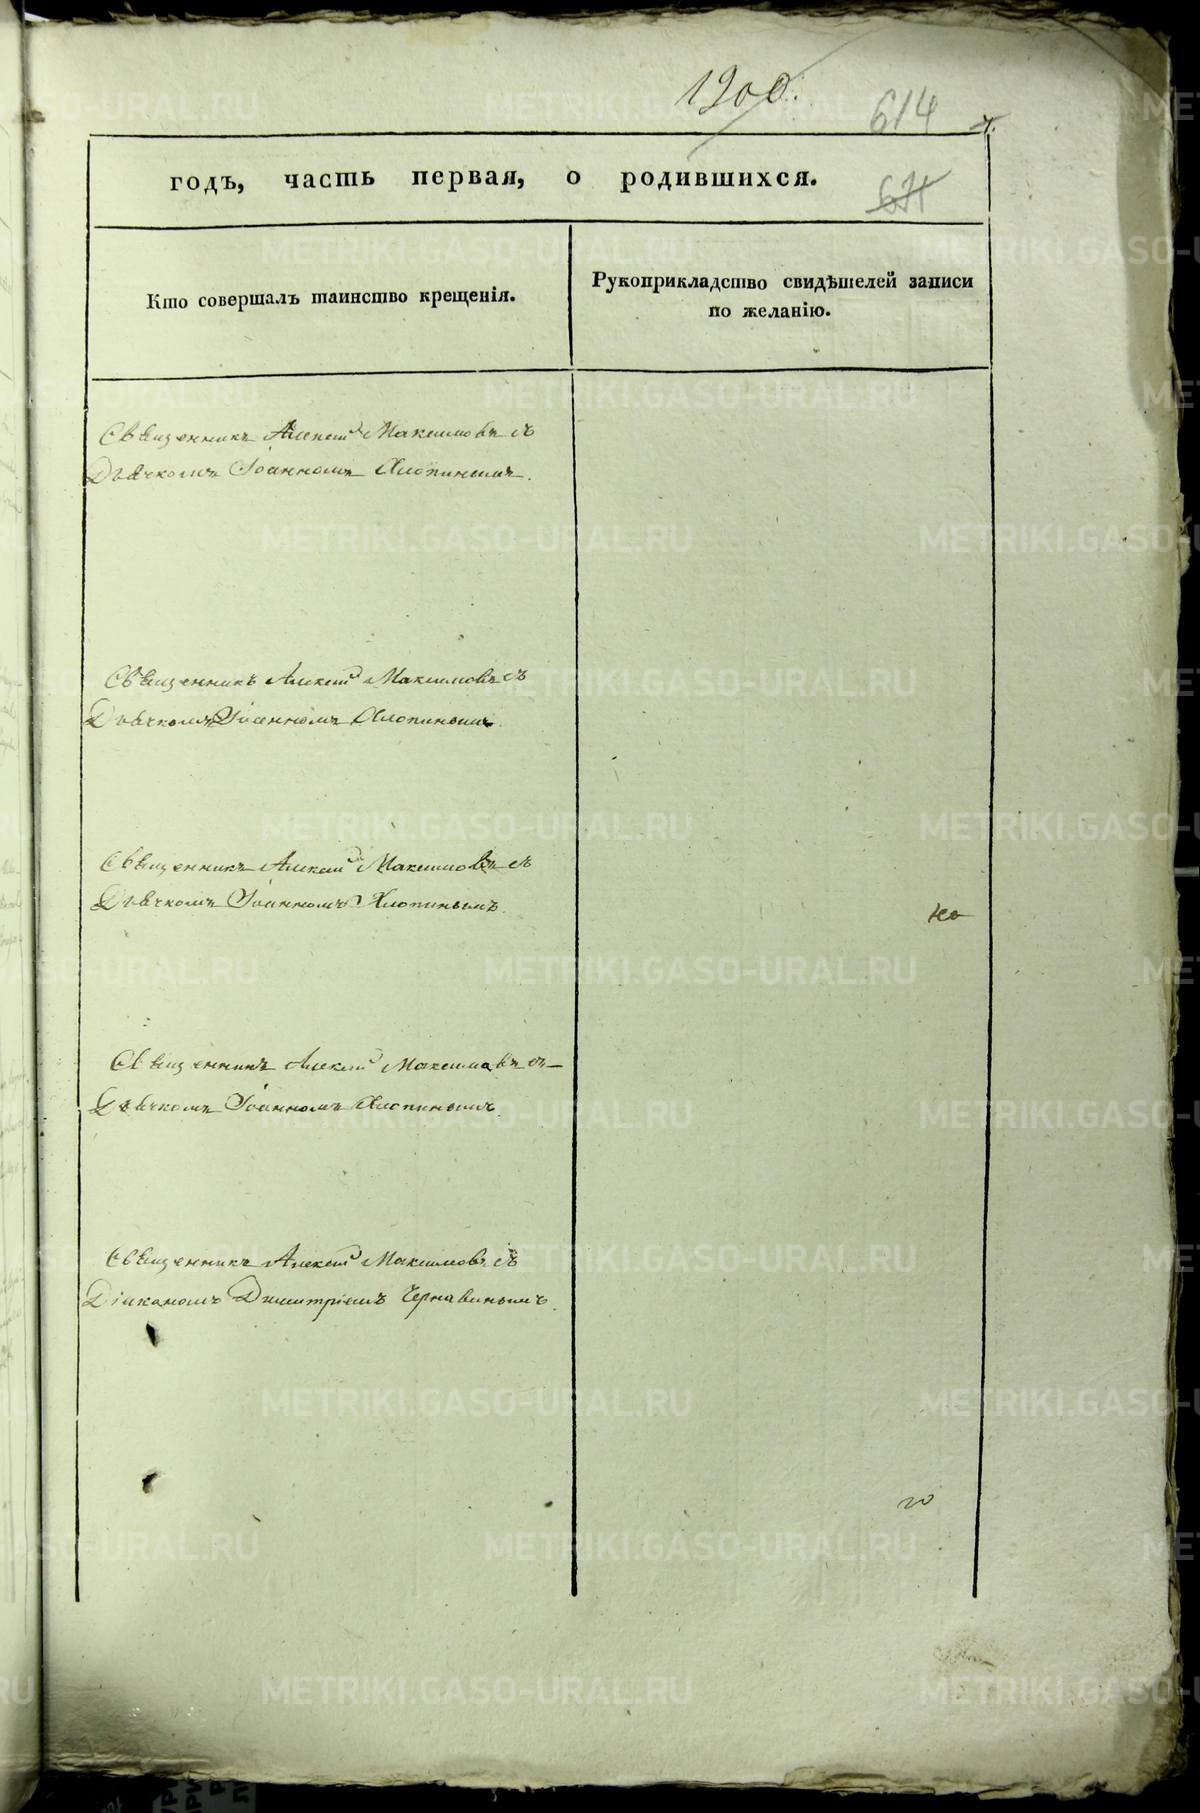 1200.
614
7.
годъ, часть первая, о родившихся.
671
Кто совершалъ таинство крещенія.
Рукоприкладство свидѣтелей записи
по желанію.
Священникъ Алексій Максимовъ съ
Дьячкомъ Іоанномъ Хлопинымъ.
Священникъ Алексій Максимовъ съ
Дьячкомъ Іоанномъ Хлопинымъ.
Священникъ Алексій Максимовъ съ
Дьячкомъ Іоанномъ Хлопинымъ.
Священникъ Алексій Максимовъ съ
Дьячкомъ Іоанномъ Хлопинымъ.
Священникъ Алексій Максимовъ съ
Діакономъ Димитріемъ Чернавинымъ.
METRIKI.GASO-URAL.RU